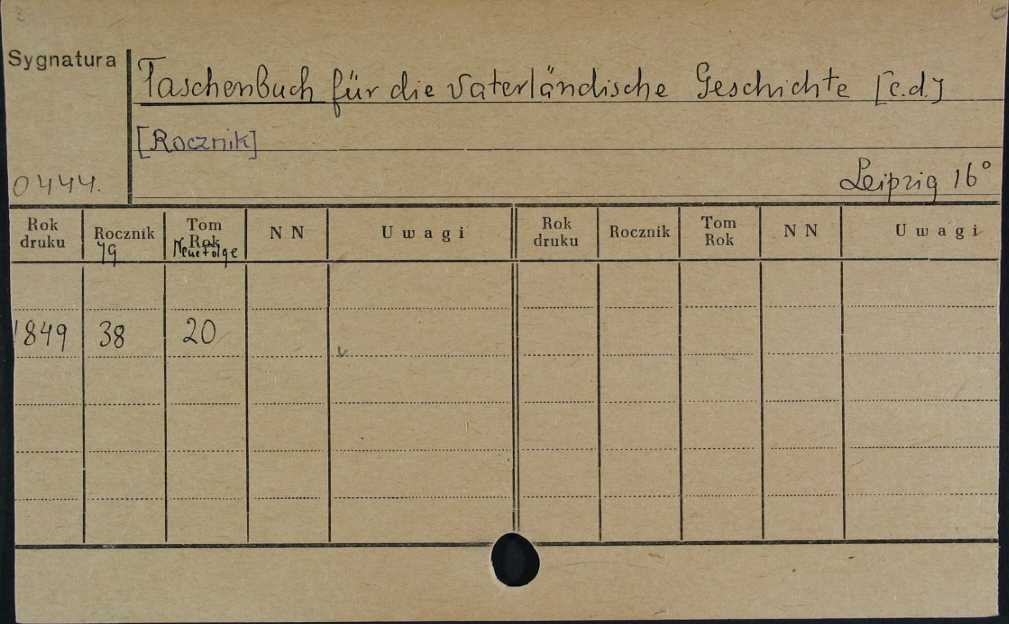 Sygnatura
Taschenbuch für die vaterländische Geschichte [c.d.]
[Rocznik]
0444.
Leipzig 16°
Rok druku Rocznik Tom Rok NN Uwagi Rok druku Rocznik Tom Rok NN Uwagi
Jg Neue Folge
1849 38 20